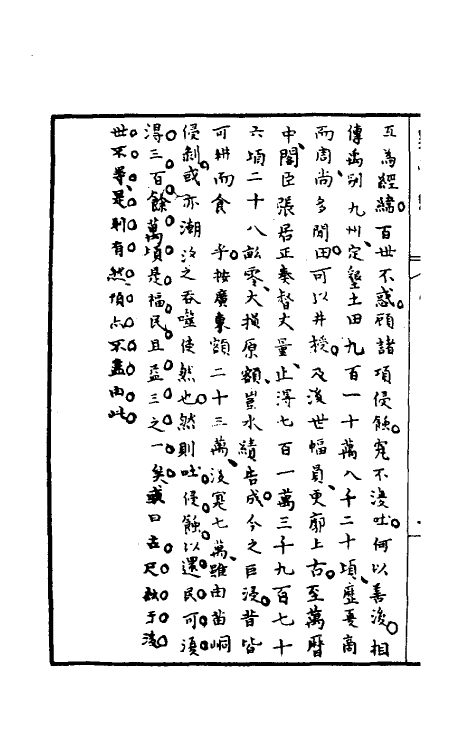 互為經緯百世不惑顧諸項侵蝕究不復吐何以善後相
傳禹別九州定墾土田九百一十萬八千二十頃歷夏商
而周尚多閒田可以井授及後世幅員更廓上古至萬曆
中閣臣張居正奏督丈量止得七百一萬三千九百七十
六頃二十八畝零大損原額豈水績告成今之巨浸昔皆
可耕而食乎按廣東額二十三萬後寔七萬雖由峒
侵剝或亦潮汐之吞噬使然也然則吐侵蝕以還民可須
得三百餘萬頃是福民且益三之一矣或曰古尺數于後
世不等是則有然頃畝不盡由此